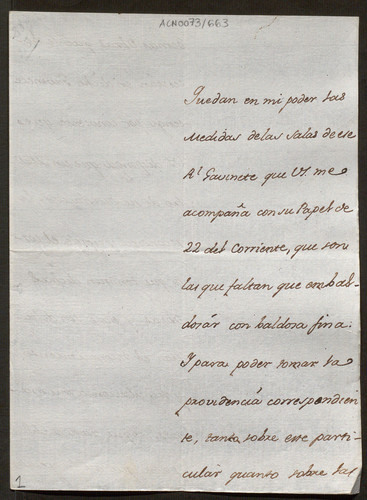 ACN0073/663
Quedan en mi poder las
Medidas de las Salas de ese
Rl Gavinete que VS. me
acompaña con su Papel de
22 del Corriente, que son
las que faltan que embal-
dosár con baldosa fina:
Y para poder tomar la
providencia correspondien
te, tanto sobre este parti-
cular quanto sobre las
1